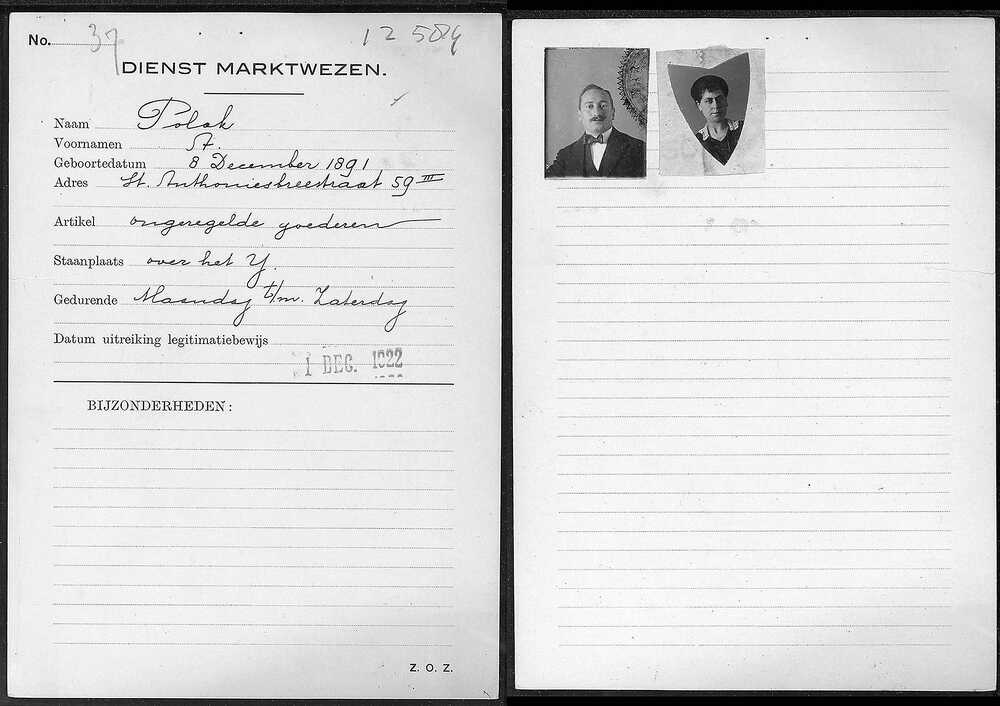 No. 37 12504
DIENST MARKTWEZEN.
Naam Polak
Voornamen A.
Geboortedatum 8 December 1891
Adres St. Anthoniesbreestraat 59 III
Artikel ongeregelde goederen
Staanplaats over het Y.
Gedurende Maandag t/m. Zaterdag
Datum uitreiking legitimatiebewijs
1 DEC. 1922
BIJZONDERHEDEN:
Z. O. Z.